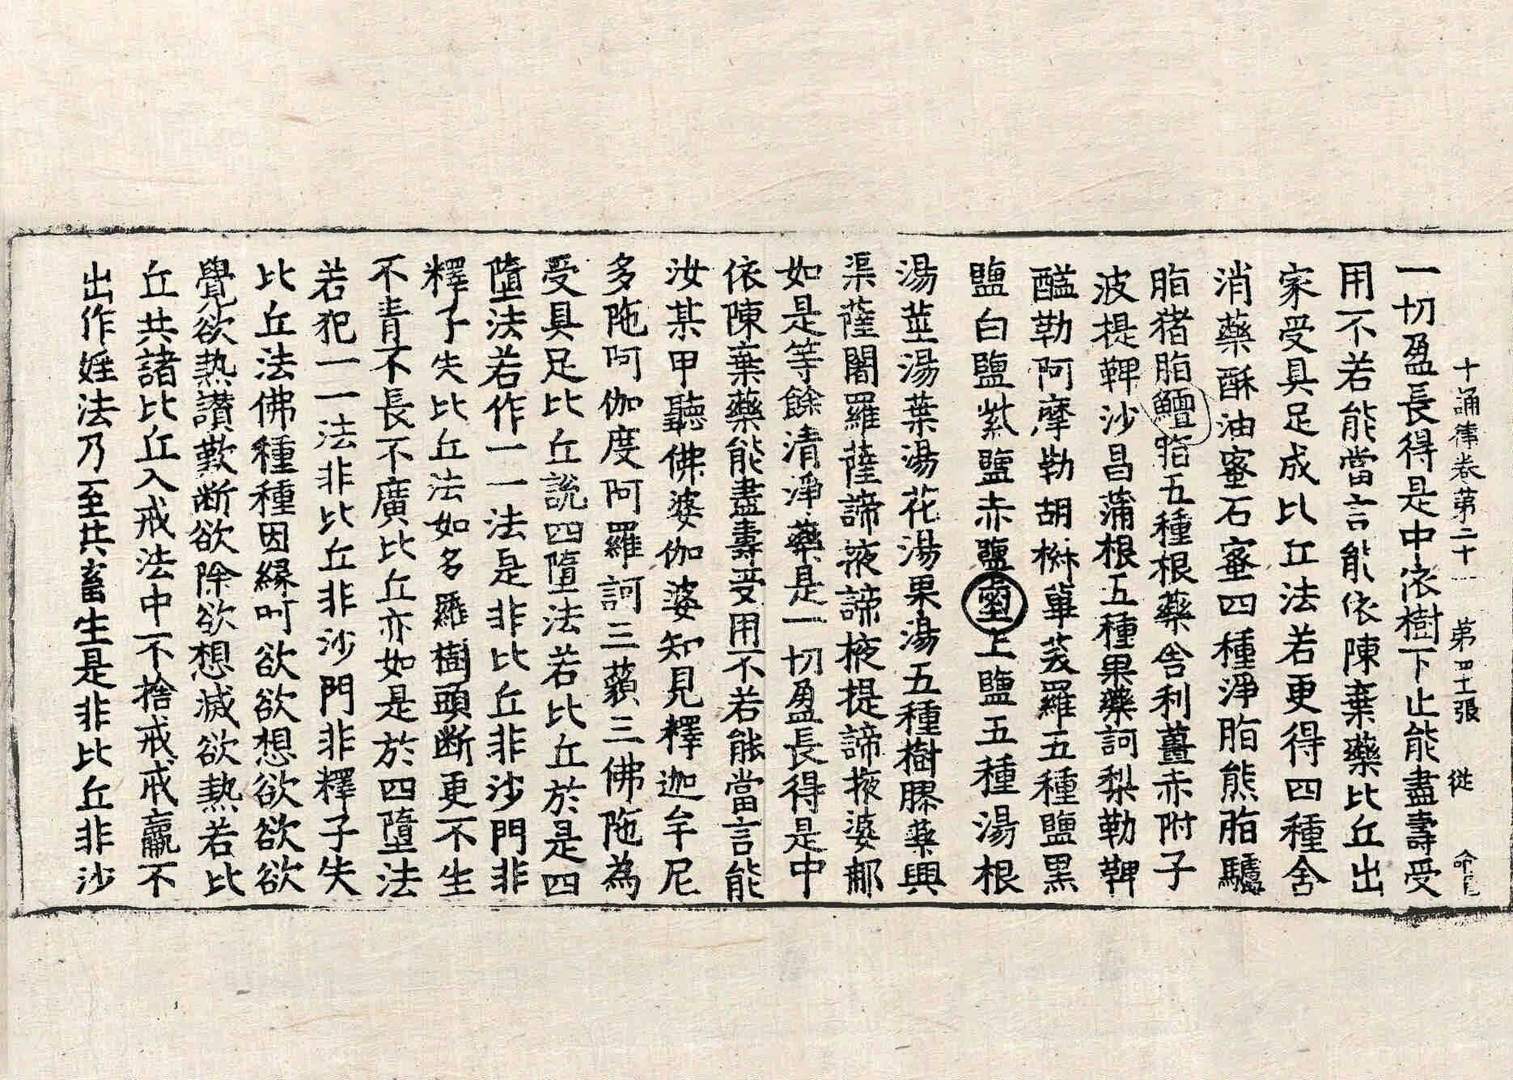 十誦律卷第二十一 第四十張 従
一切盈長得是中依樹下止能盡壽受
用不若能當言能依陳棄藥比丘出
家受具足成比丘法若更得四種舍
消藥酥油蜜石蜜四種淨脂熊脂驢
脂猪脂鱣脂五種根藥舍利薑赤附子
波提鞞沙昌蒲根五種果藥訶梨勒鞞
醯勒阿摩勒胡椒蓽茇羅五種鹽黑
鹽白鹽紫鹽赤鹽鹵土鹽五種湯根
湯莖湯葉湯花湯果湯五種樹膠藥興
渠薩闍羅薩諦掖諦掖提諦掖婆那
如是等餘清淨藥是一切盈長得是中
依陳棄藥能盡壽受用不若能當言能
汝某甲聽佛婆伽婆知見釋迦牟尼
多陁阿伽度阿羅訶三藐三佛陁為
受具足比丘說四墮法若比丘於是四
墮法若作一一法是非比丘非沙門非
釋子失比丘法如多羅樹頭斷更不生
不青不長不廣比丘亦如是於四墮法
若犯一一法非比丘非沙門非釋子失
比丘法佛種種因緣呵欲欲想欲欲欲
覺欲熱讚歎斷欲除欲想滅欲熱若比
丘共諸比丘入戒法中不捨戒戒羸不
出作婬法乃至共畜生是非比丘非沙